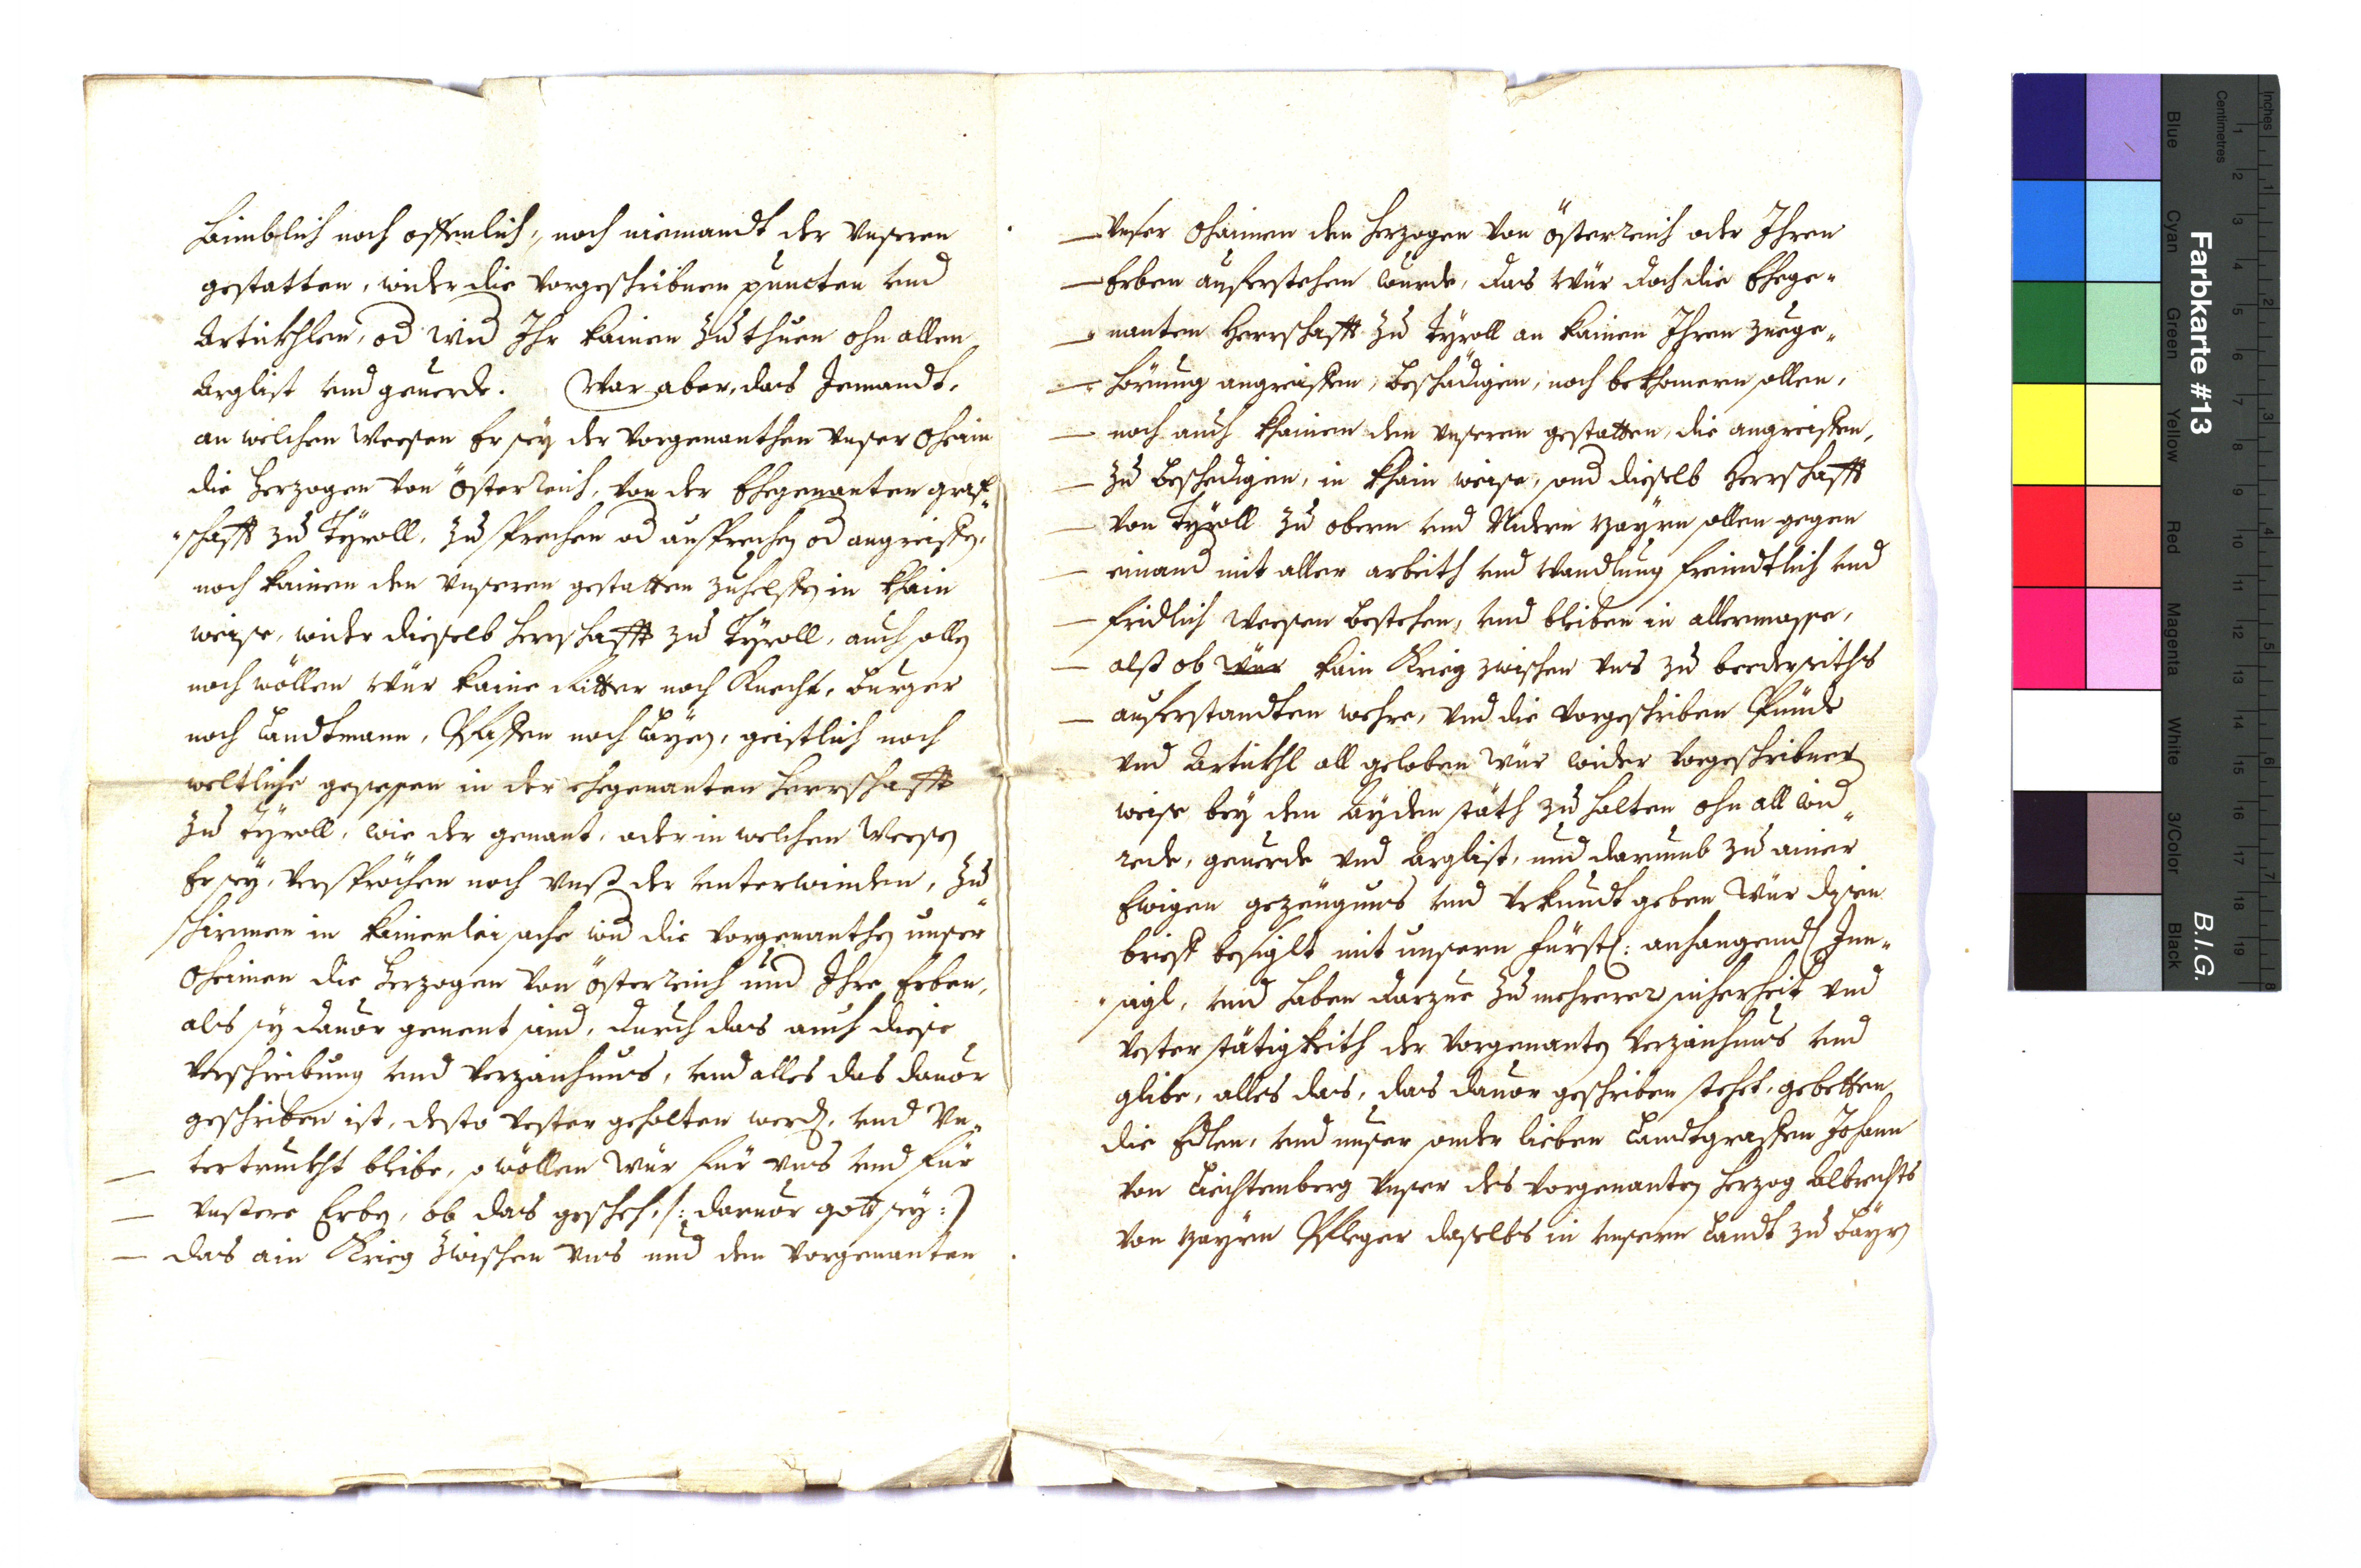 haimblich noch offenlich, noch niemandt der Unseren
gestatten, wider die vorgeschribnen puncten und
Articklen, od wid Ihr kainen zu thuen ohn allen
Arglist und geuerde. War aber, das Jemandt,
an welchen Weesen Er sey der vorgenanthen unser Oheim
die Herzogen von Österreich, von der Ehegenanten graf„
„schafft zu Tyroll, zu sprechen od ansprechen od angreiffen,
noch kainen den unseren gestatten zuhelffen in khain
weise, wider dieselb herrschafft zu Tyroll, auch sollen
noch wöllen Wür kaine Ritter noch Knecht, burger
noch Landtmann, Pfaffen noch Layen, geistlich noch
weltliche gesessen in der ehegenanten herrschafft
zu Tyroll, wie der genant, oder in welchen Weesen
Er sey, versprächen noch unß der unterwinden, zu
schirmen in kainerlei sache wid die vorgenanthen unser
Oheimen die Herzogen von Österreich und Ihre Erben,
als sy dauor genent sind, durch das auch diese
verschreibung und verzaihnus, und alles das dauor
geschriben ist, desto vester gehalten werd, und Un„
tertruckht bleibe, so wöllen Wür für uns und für
unsere Erben, ob das gescheh, /: daruor gott sey :/
das ain Krieg zwischen uns und den vorgenanten
unser Oheimen den Herzogen von Österreich oder Ihren
Erben auferstehen wurde, das Wür doch die Ehege„
nanten Herrschafft zu Tyroll an kainen Ihren zuege„
hörung angreiffen, beschädigen, noch bekhomern sollen,
noch auch khainen den unseren gestatten, die angreiffen,
zu beschedigen, in khain weise, und dieselb Herrschafft
von Tyroll zu obern und Nidern Bayrn sollen gegen
einand mit aller arbeith und Wandlung freindtlich und
fridlich Weesen bestehen, und bleiben in allermasse,
alß ob Wür kain Krieg zwischen uns zu beederseiths
auferstandten wehre, und die vorgeschriben Pündt
und Articthl all geloben Wür wider vorgeschribner
weise bey den Ayden stäth zu halten ohn all wid„
rede, geuerde und Arglist, und darumb zu ainer
Ewigen gezeugnus und Urkundt geben Wür disen
brieff besiglt mit unsern Fürstl: anhangend Inn„
„sigl, und haben darzue zu mehrerer sicherheit und
vester stätigkeith der vorgenanten verzaihnus und
glibe, alles das, das dauor geschriben stehet, gebetten
die Edlen, und unser sonder lieben Landtgraffen Johann
von Leichtemberg unser des vorgenanten Herzog Albrechts
von Bayrn Pfleger daselbs in unsern Landt zu Bayrn
Farbkarte #13
B.I.G.
Inches
Centimetres
1 2 3 4 5 6 7 8
1 2 3 4 5 6 7 8 9 10 11 12 13 14 15 16 17 18 19
Blue
Cyan
Green
Yellow
Red
Magenta
White
3/Color
Black